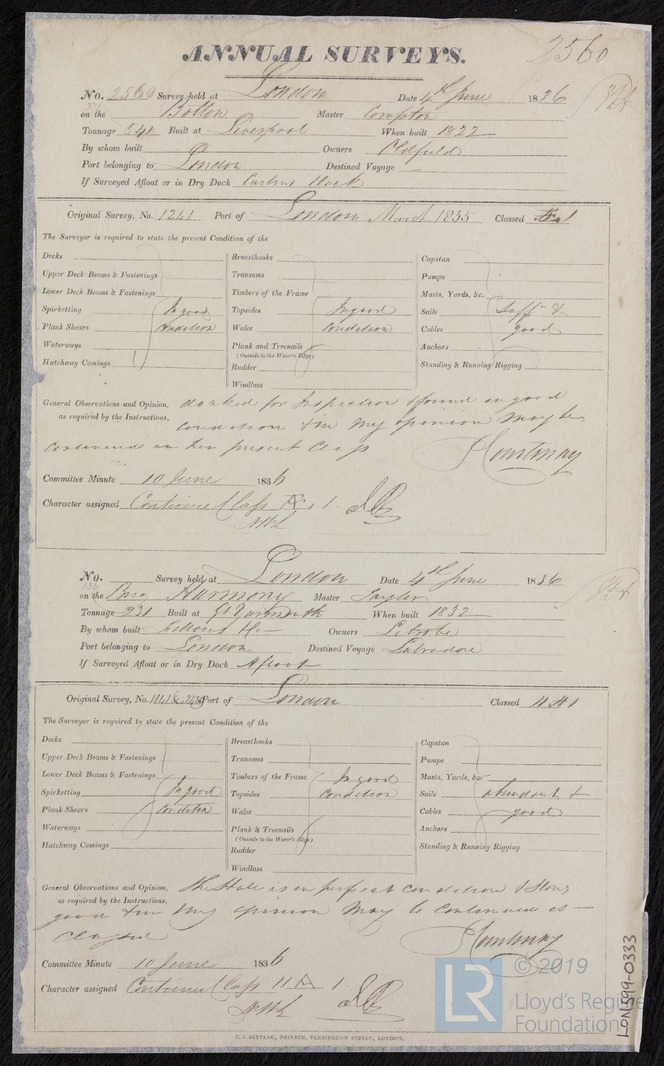 2560
ANNUAL SURVEYS.
No. 2560 Survey held at London Date 4th June 1836
on the Bolton Master Compton
Tonnage 541 Built at Liverpool When built 1822
By whom built Owners Oldfield
Port belonging to London Destined Voyage
If Surveyed Afloat or in Dry Dock Dock
Original Survey, No. 1241 Port of London March 1835 Classed 1
The Surveyor is required to state the present Condition of the
Decks Breasthooks Capstan
Upper Deck Beams & Fastenings Transoms Pumps
Lower Deck Beams & Fastenings Timbers of the Frame Masts, Yards, &c.
Spirketting In good Topsides In good Sails Sufft &
Plank Shears Condition Wales Condition Cables good
Waterways Plank and Treenails (Outside to the Water's Edge) Anchors
Hatchway Comings Rudder Standing & Running Rigging
Windlass
General Observations and Opinion, docked for Inspection & found in good
as required by the Instructions, condition & in my opinion may be
continued in her present Class
Courtenay
Committee Minute 10 June 1836
Character assigned Continued Class 1
No. Survey held at London Date 4th June 1836
136
on the Brig Harmony Master Taylor
Tonnage 231 Built at Gt Yarmouth When built 1832
By whom built Owners Latrobe
Port belonging to London Destined Voyage Labradore
If Surveyed Afloat or in Dry Dock Afloat
Original Survey, No. Port of London Classed A1
The Surveyor is required to state the present Condition of the
Decks Breasthooks Capstan
Upper Deck Beams & Fastenings Transoms Pumps
Lower Deck Beams & Fastenings Timbers of the Frame In good Masts, Yards, &c.
Spirketting In good Topsides Condition Sails abundant &
Plank Shears Condition Wales Cables good
Waterways Plank & Treenails (Outside to the Water's Edge) Anchors
Hatchway Comings Rudder Standing & Running Rigging
Windlass
General Observations and Opinion, the Hold is in perfect condition & Stores
as required by the Instructions, good & in my opinion may be continued as
Classed
Courtenay
Committee Minute 10 June 1836
Character assigned Continued Class 11 A 1
C. F. SEYFANG, PRINTER, FARRINGDON STREET, LONDON.
LR © 2019
Lloyd's Register
Foundation
LON599-0333